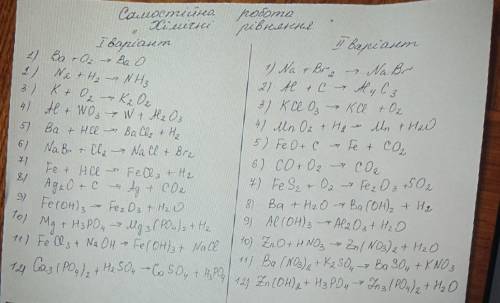 Самостійна робота
"Хімічні рівняння"
I варіант
1) Ba + O₂ → BaO
2) N₂ + H₂ → NH₃
3) K + O₂ → K₂O₂
4) Al + WO₃ → W + Al₂O₃
5) Ba + HCl → BaCl₂ + H₂
6) NaBr + Cl₂ → NaCl + Br₂
7) Fe + HCl → FeCl₃ + H₂
8) Ag₂O + C → Ag + CO₂
9) Fe(OH)₃ → Fe₂O₃ + H₂O
10) Mg + H₃PO₄ → Mg₃(PO₄)₂ + H₂
11) FeCl₃ + NaOH → Fe(OH)₃ + NaCl
12) Ca₃(PO₄)₂ + H₂SO₄ → CaSO₄ + H₃PO₄
II варіант
1) Na + Br₂ → NaBr
2) Al + C → Al₄C₃
3) KClO₃ → KCl + O₂
4) MnO₂ + H₂ → Mn + H₂O
5) FeO + C → Fe + CO₂
6) CO + O₂ → CO₂
7) FeS₂ + O₂ → Fe₂O₃ + SO₂
8) Ba + H₂O → Ba(OH)₂ + H₂
9) Al(OH)₃ → Al₂O₃ + H₂O
10) ZnO + HNO₃ → Zn(NO₃)₂ + H₂O
11) Ba(NO₃)₂ + K₂SO₄ → BaSO₄ + KNO₃
12) Zn(OH)₂ + H₃PO₄ → Zn₃(PO₄)₂ + H₂O